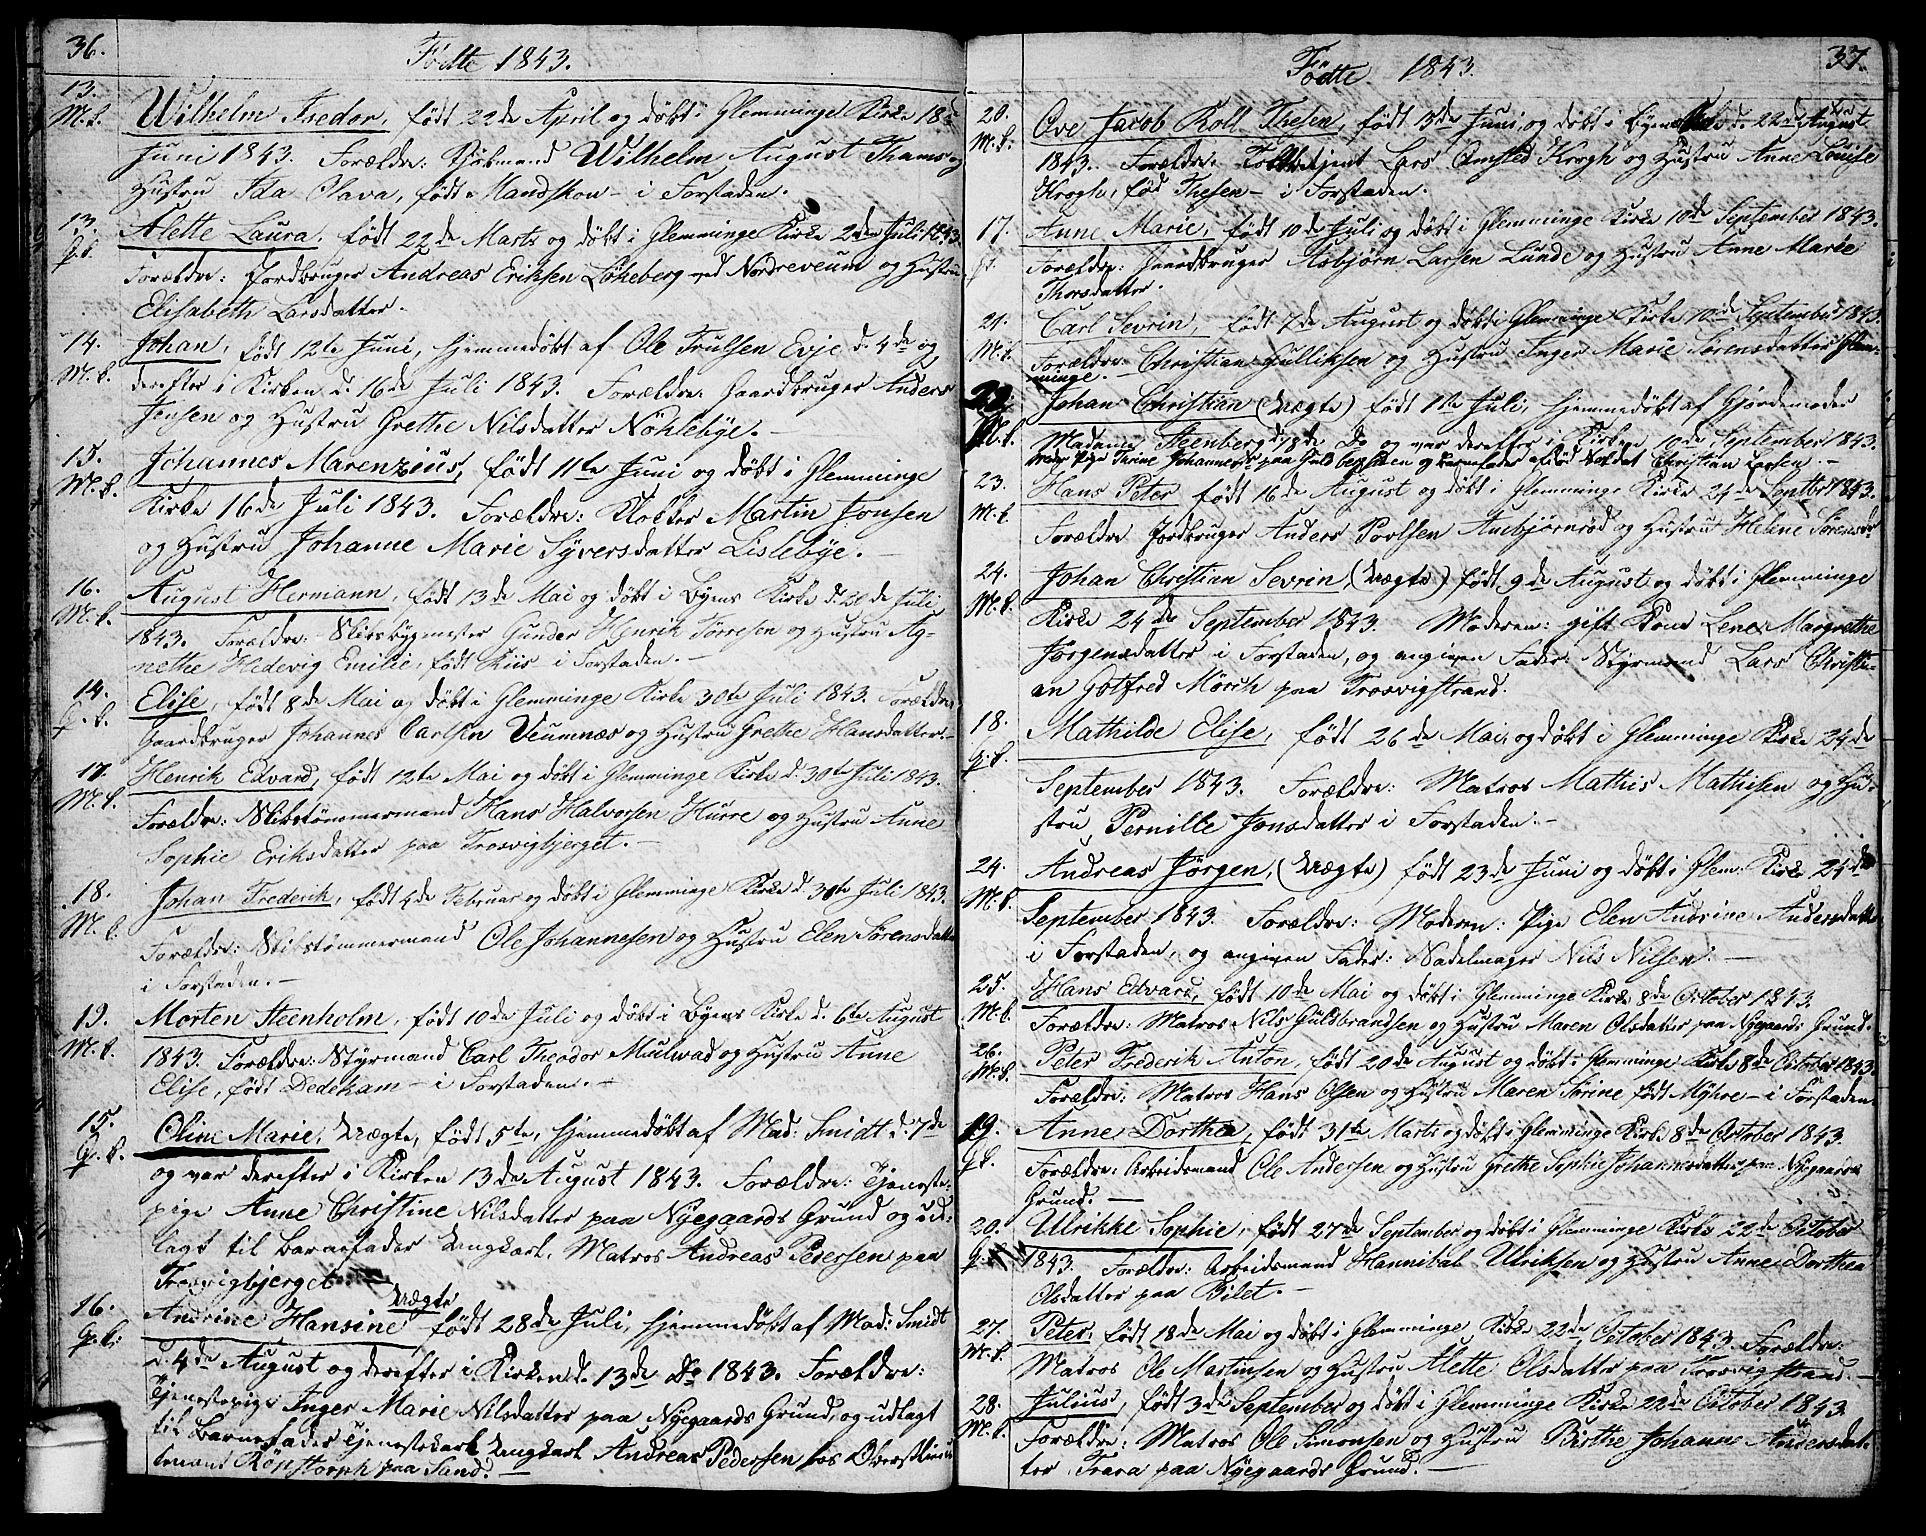 36.
Födte 1843.
13.
M.k.
Wilhelm Fredor, født 22de April og døbt i Glemminge Kirke 18de
Juni 1843. Forældre: Kjøbmand Wilhelm August Thams og
Hustru Ida Olava, født Mandskow – i Forstaden.
13.
Q.k.
Alette Laura, født 22de Marts og døbt i Glemminge Kirke 2den Juli 1843.
Forældre: Jordbruger Andreas Eriksen Løkeberg ved Nordreveum og Hustru
Elisabeth Larsdatter.
14.
M.k.
Johan, født 12te Juni, hjemmedøbt af Ole Trulsen Evje d. 4de og
derefter i Kirken d. 16de Juli 1843. Forældre: Gaardbruger Anders
Jensen og Hustru Grethe Nilsdatter Nöhlebye.
15.
M.k.
Johannes Marenzius, født 11te Juni og døbt i Glemminge
Kirke 16de Juli 1843. Forældre: Klokker Martin Jonsen
og Hustru Johanne Marie Syversdatter Lislebye.
16.
M.k.
August Hermann, født 13de Mai og døbt i Byens Kirke d. 20de Juli
1843. Forældre: Skibsbygmester Gunder Henrik Sörresen og Hustru Ag-
nethe Hedevig Emilie, født Kiis i Forstaden.
14.
Q.k.
Elise, født 8de Mai og døbt i Glemminge Kirke 30te Juli 1843. Forældre:
Gaardbruger Johannes Carlsen Veumnæs og Hustru Grethe Hansdatter.
17.
M.k.
Henrik Edvard, født 12te Mai og døbt i Glemminge Kirke d. 30te Juli 1843.
Forældre: Skibstømmermand Hans Halvorsen Hurre og Hustru Anne
Sophie Eriksdatter paa Trosvigbjerget.
18.
M.k.
Johan Frederik, født 4de Februar og døbt i Glemminge Kirke d. 30te Juli 1843.
Forældre: Skibstømmermand Ole Johannesen og Hustru Elen Sørensdatter
i Forstaden.
19.
M.k.
Morten Steenholm, født 10de Juli og døbt i Byens Kirke d. 6te August
1843. Forældre: Styrmand Carl Theodor Muulwad og Hustru Anne
Elise, født Dedekam – i Forstaden.
15.
Q.k.
Oline Marie, Uægte, født 5te, hjemmedøbt af Mad: Smidt d. 7de
og var derefter i Kirken 13de August 1843. Forældre: Tjeneste-
pige Anne Christine Nilsdatter paa Nyegaards Grund og ud-
lagt til Barnefader Ungkarl, Matros Andreas Pedersen paa
Trosvigbjerget
16.
Q.k.
Uægte
Andrine Hansine født 28de Juli, hjemmedøbt af Mad: Smidt
d. 4de August og derefter i Kirken d. 13de Do 1843. Forældre:
Tjenestepige Inger Marie Nilsdatter paa Nyegaards Grund, og udlagt
til Barnefader Tjenestekarl Ungkarl Andreas Pedersen hos Oberstlieu-
tenant Rönstorph paa Sand.
37.
Födte 1843.
20.
M.k.
Ove Jacob Roll Thesen, født 13de Juni og døbt i Byens Kirke d. 22de August
1843. Forældre: Toldbetjent Lars Omsted Krogh og Hustru Anne Louise
Krogh, fød Thesen – i Forstaden.
17.
Anne Marie, født 10de Juli og døbt i Glemminge Kirke 10de September 1843.
Forældre: Gaardbruger Asbjørn Larsen Lunde og Hustru Anne Marie
Thorsdatter.
21.
M.k.
Carl Sevrin, født 7de August og døbt i Glemminge Kirke 10de September 1843.
Forældre: Christian Gulliksen og Hustru Inger Marie Sørensdatter Glem-
minge.
22.
M.k.
Johan Christian (Uægte) født 1ste Juli, hjemmedøbt af Gjordemoder
Madame Steenberg d. 18de Do og var derefter i Kirken 10de September 1843.
Moder Pige Thrine Johannesd: paa Guldbergsiden og Barnefader afdød Soldat Christian Larsen.
23.
M.k.
Hans Peter, født 16de August og døbt i Glemminge Kirke 24de Septbr 1843.
Forældre Jordbruger Anders Povlsen Ambjørnrød og Hustru Helene Sørensdr
24.
M.k.
Johan Christian Sevrin, (Uægte) født 9de August og døbt i Glemminge
Kirke 24de September 1843. Moderen: gift Kone Lene Margrethe
Jørgensdatter i Forstaden, og angiven Fader Styrmand Lars Christi-
an Gotfred Mörch paa Trosvigstrand.
18.
Q.k.
Mathilde Elise, født 26de Mai og døbt i Glemminge Kirke 24de
September 1843. Forældre: Matros Mathis Mathisen og Hu-
stru Pernille Jonsdatter i Forstaden.
24.
M.k.
Andreas Jørgen, (Uægte) født 23de Juni og døbt i Glem: Kirke 24de
September 1843. Forældre: Moderen: Pige Elen Andrine Andersdatter
i Forstaden, og angiven Fader: Sadelmager Nils Nilsen.
25.
M.k.
Hans Edvard, født 10de Mai og døbt i Glemminge Kirke 8de October 1843.
Forældre: Matros Nils Guldbrandsen og Hustru Maren Olsdatter paa Nyegaards Grund.
26.
M.k.
Peter Frederik Anton, født 20de August og døbt i Glemminge Kirke 8de October 1843.
Forældre: Matros Hans Olsen og Hustru Maren Sørine, født Myhre – i Forstaden.
19.
Q.k.
Anne Dorthea, født 31te Marts og døbt i Glemminge Kirke 8de October 1843.
Forældre: Arbeidsmand Ole Andersen og Hustru Grethe Sophie Johannesdatter paa Nyegaards
Grund.
20.
Q.k.
Ulrikke Sophie, født 27de September og døbt i Glemminge Kirke 22de October
1843. Forældre: Arbeidsmand Hannibal Ulriksen og Hustru Anne Dorthea
Olsdatter paa Bilet.
27.
M.k.
Peter, født 18de Mai og døbt i Glemminge Kirke 22de October 1843. Forældre:
Matros Ole Martinsen og Hustru Alette Olsdatter paa Trosvigstrand.
28.
M.k.
Julius, født 3de September og døbt i Glemminge Kirke 22de October 1843.
Forældre: Matros Ole Simonsen og Hustru Birthe Johanne Andersdat-
ter Trara paa Nyegaards Grund.